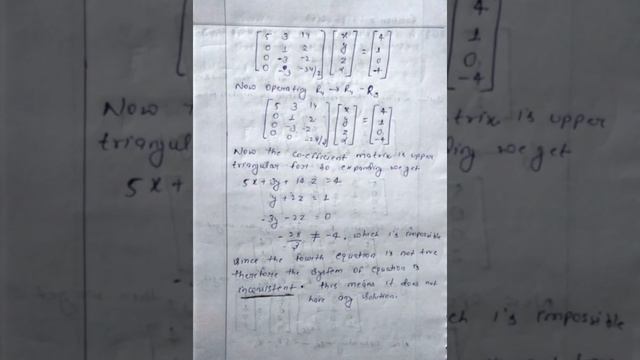 [5 3 14
0 1 2
0 -3 -2
0 -3 -34/2] [x
y
z
] = [4
1
0
-4]
Now operating R4 → R4 - R3
[5 3 14
0 1 2
0 -3 -2
0 0 ] [x
y
z
] = [4
1
0
-4]
Now the co-efficient matrix is upper
triangular for so expanding we get
5x+3y+14z =4
y+2z = 1
-3y-2z = 0
≠ -4. which is impossible
since the fourth equation is not true
therefore the system of equation is
inconsistent. this means it does not
have any solution.